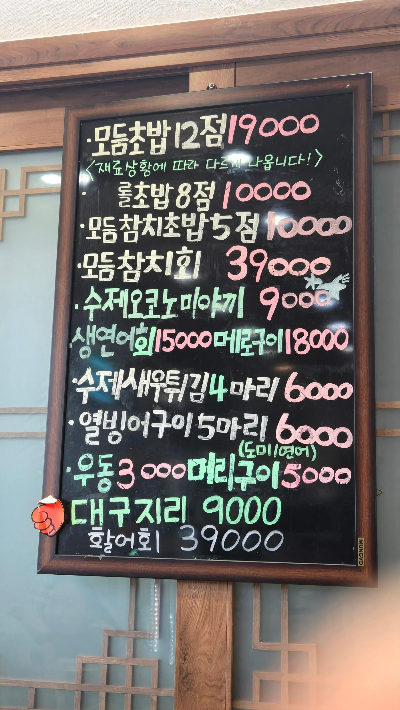 ·모듬초밥 12점 19000
<재료상황에 따라 다르게 나옵니다!>
· 롤초밥 8점 10000
·모듬참치초밥 5점 10000
·모듬참치회 39000
·수제오코노미야끼 9000
·생연어회 15000 메로구이 18000
·수제새우튀김 4마리 6000
·열빙어구이 5마리 6000
(도미/연어)
·우동 3000 머리구이 5000
대구지리 9000
활어회 39000